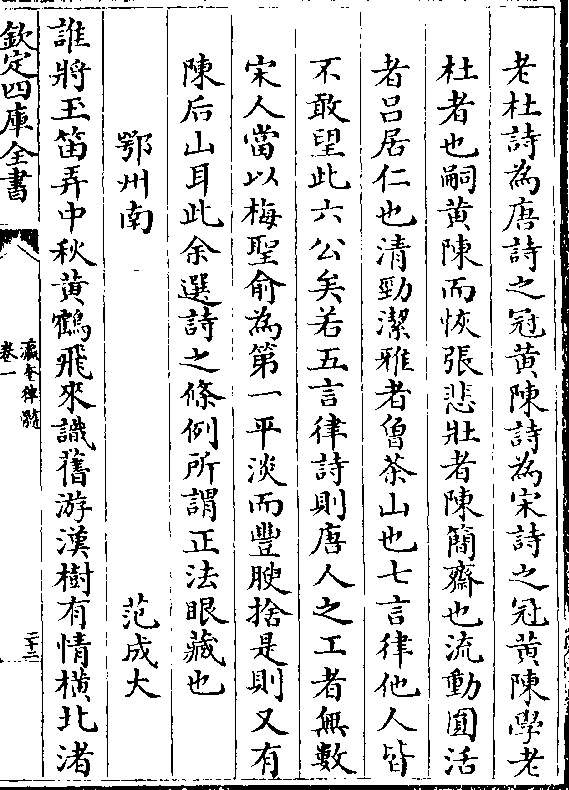 老杜詩為唐詩之冠黄陳詩為宋詩之冠黄陳學老
杜者也嗣黄陳而恢張悲壯者陳簡齋也流動圓活
者吕居仁也清勁潔雅者曾茶山也七言律他人皆
不敢望此六公矣若五言律詩則唐人之工者無數
宋人當以梅聖俞為第一平淡而豐腴捨是則又有
陳后山耳此余選詩之條例所謂正法眼藏也
鄂州南　范成大
誰將玉笛弄中秋黄鶴飛來識舊游漢樹有情横北渚
欽定四庫全書
瀛奎律髓
卷一
二十三